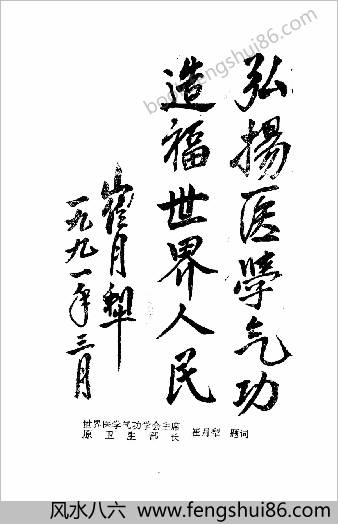 弘揚医學气功
造福世界人民
崔月犁
一九九一年三月
世界医学气功学会主席
原卫生部长
崔月犁 题词
book.fengshui86.com
风水八六 - www.fengshui86.com